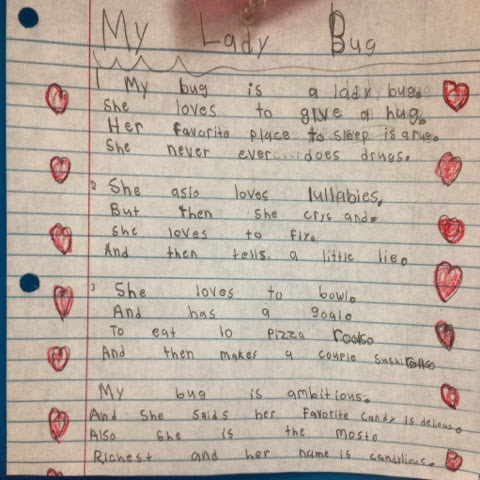 My Lady Bug
1 My bug is a lady bug.
She loves to give a hug.
Her favorite place to sleep is a rug.
She never ever does drugs.
2 She aslo loves lullabies.
But then she crys and.
she loves to fly.
And then tells a little lie.
3 She loves to bowl.
And has a goal.
To eat 10 pizza
And then makes a couple sushi rolls.
My bug is ambitious.
And she saids her favorite candy is
Also she is the most.
Richest and her name is candylious.